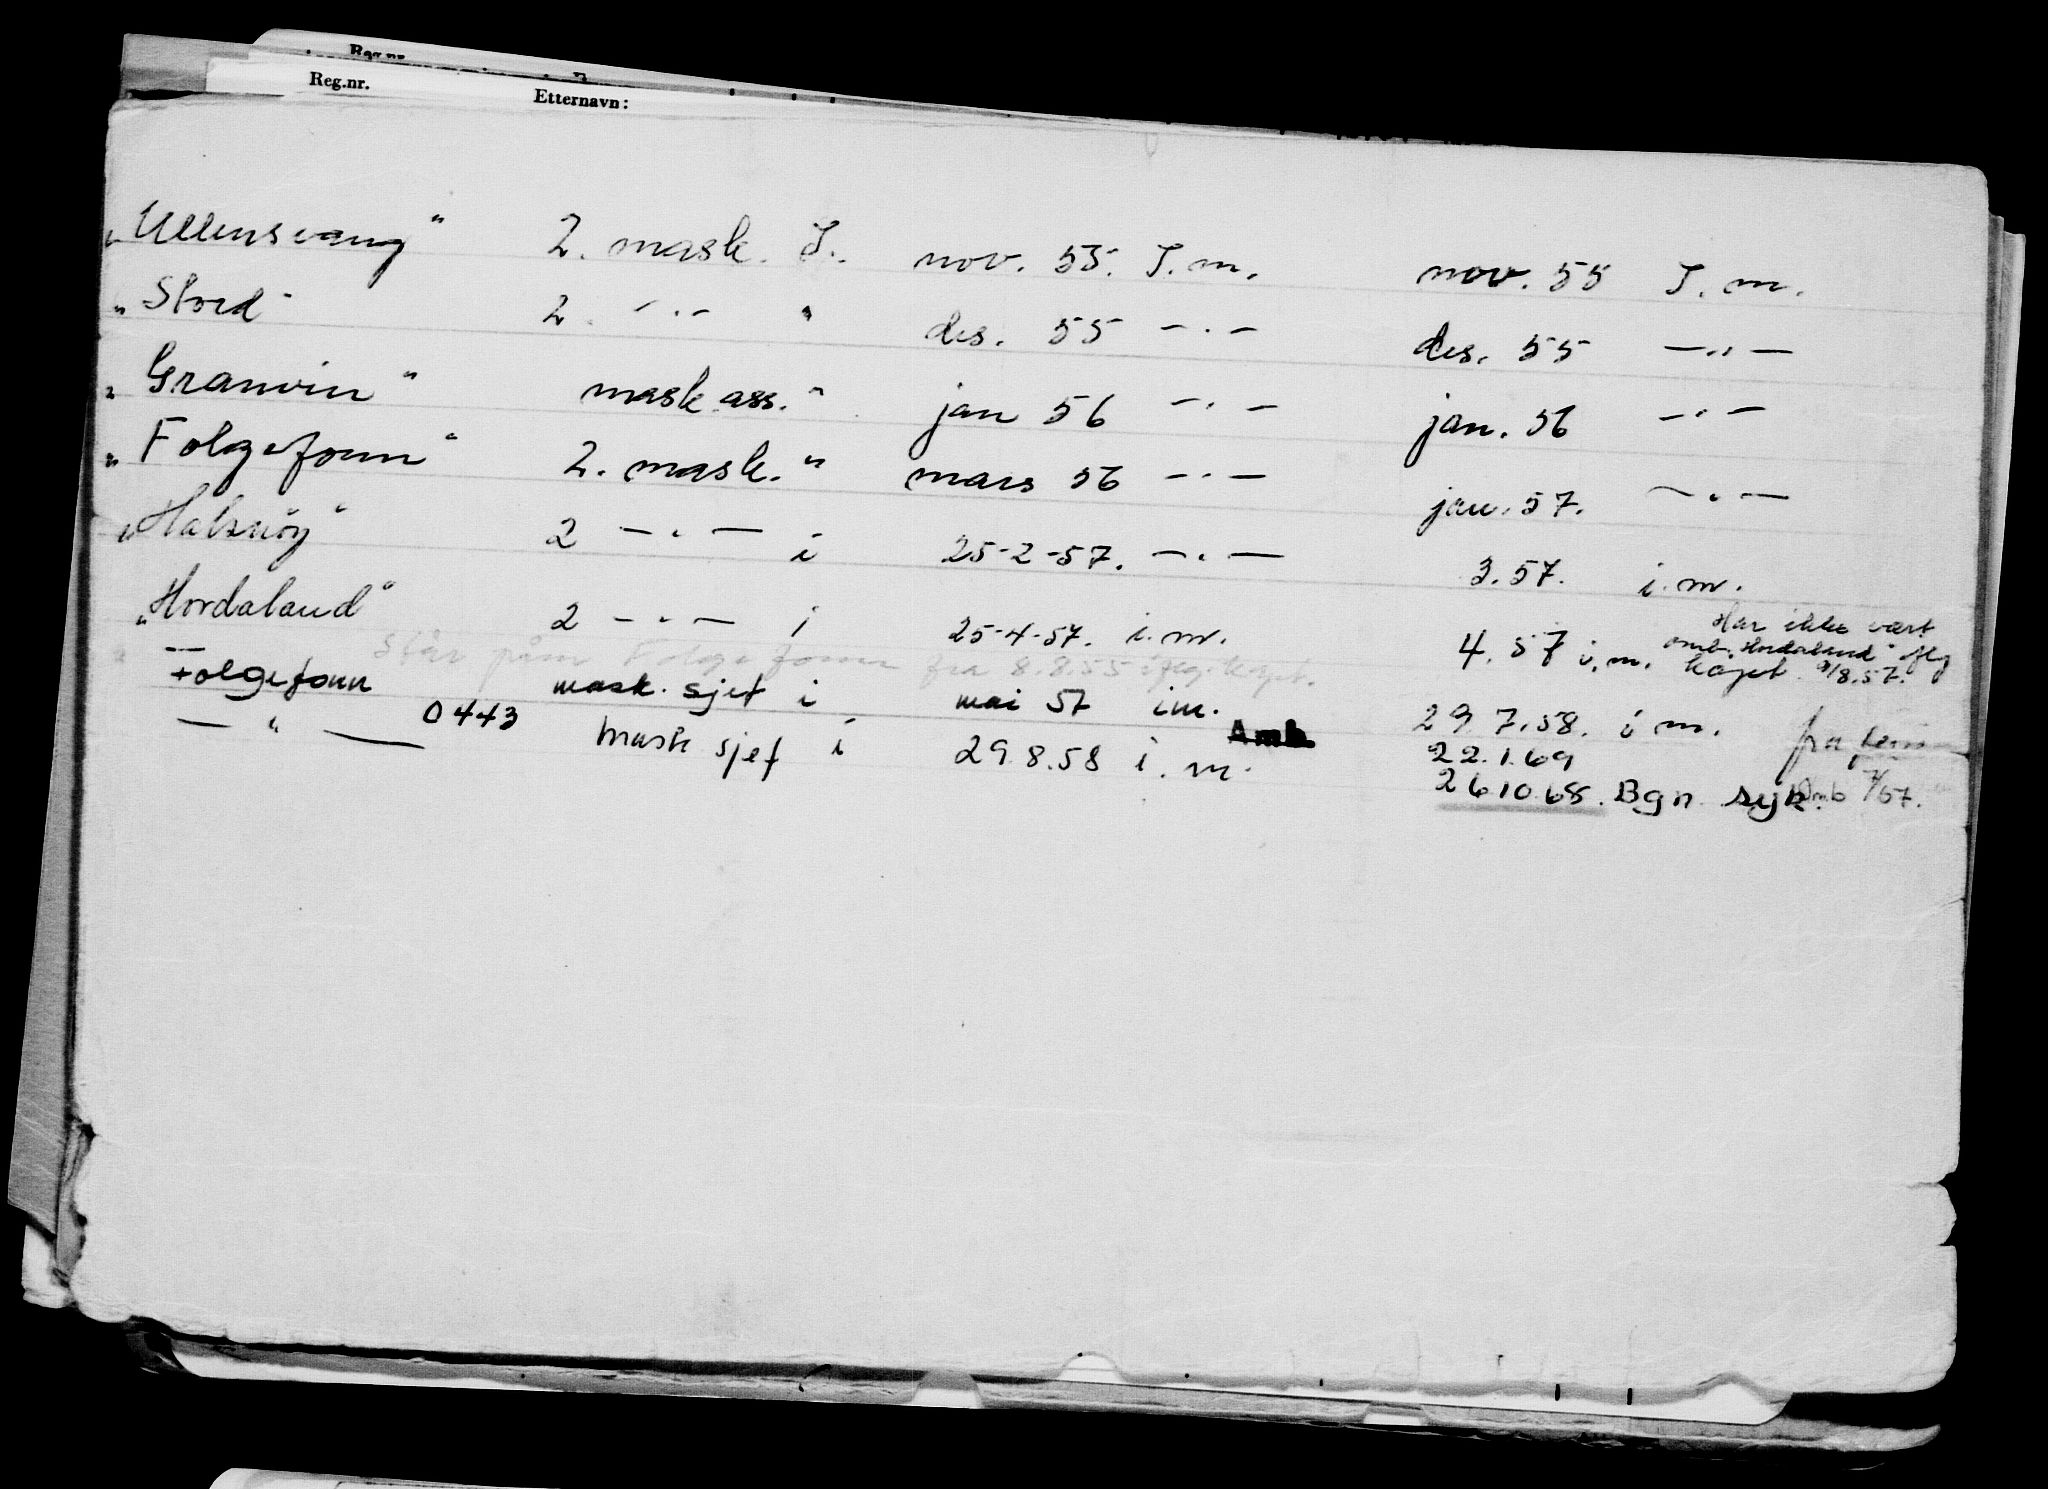 Reg.nr.
Reg.nr. Etternavn:
"Ullensvang" 2. mask. I. nov. 55. I.m. nov. 55 I.m.
"Stord" 2. -"- " des. 55 -"- des. 55 -"-
"Granvin" mask ass. " jan 56 -"- jan. 56 -"-
"Folgefonn" 2. mask. " mars 56 -"- jan. 57. -"-
"Halsnöy" 2 -"- i 25-2-57. -"- 3.57. i.m.
"Hordaland" 2 -"- i 25-4-57. i.m. 4.57 i.m. Har ikke vært
omb. "Hordaland" iflg
kapt. 9/8.57.
Står påm Folgefonn fra 8.8.55 iflg. kapt.
Folgefonn mask. sjef i mai 57 im. 29.7.58. i m. fra
-"- 0443 Mask sjef i 29.8.58 i.m. Amb 22.1.69
26.10.68. Bgn. syk. Omb 7/57.